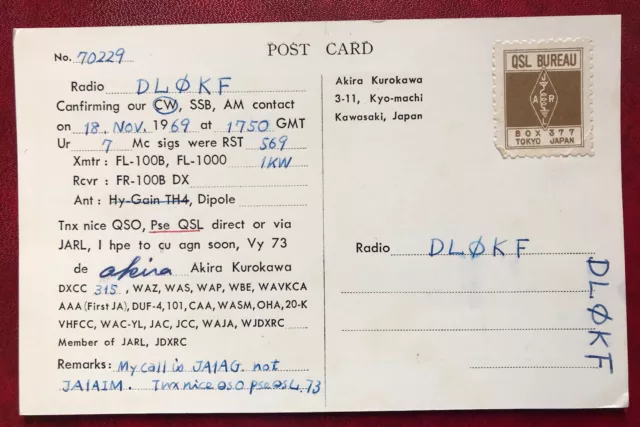 No. 70229
POST CARD
Radio DLØKF
Confirming our CW, SSB, AM contact
on 18. NOV. 1969 at 1750 GMT
Ur 7 Mc sigs were RST 569
Xmtr : FL-100B, FL-1000 1KW
Rcvr : FR-100B DX
Ant : Hy-Gain TH4, Dipole
Tnx nice QSO, Pse QSL direct or via
JARL, I hpe to cu agn soon, Vy 73
de akira Akira Kurokawa
DXCC 315, WAZ, WAS, WAP, WBE, WAVKCA
AAA (First JA), DUF-4, 101, CAA, WASM, OHA, 20-K
VHFCC, WAC-YL, JAC, JCC, WAJA, WJDXRC
Member of JARL, JDXRC
Remarks: My call is JA1AG. not
JA1AIM. Tnx nice QSO pse QSL. 73
Akira Kurokawa
3-11, Kyo-machi
Kawasaki, Japan
QSL BUREAU
J
A R
L
BOX 377
TOKYO JAPAN
Radio DLØKF
DLØKF